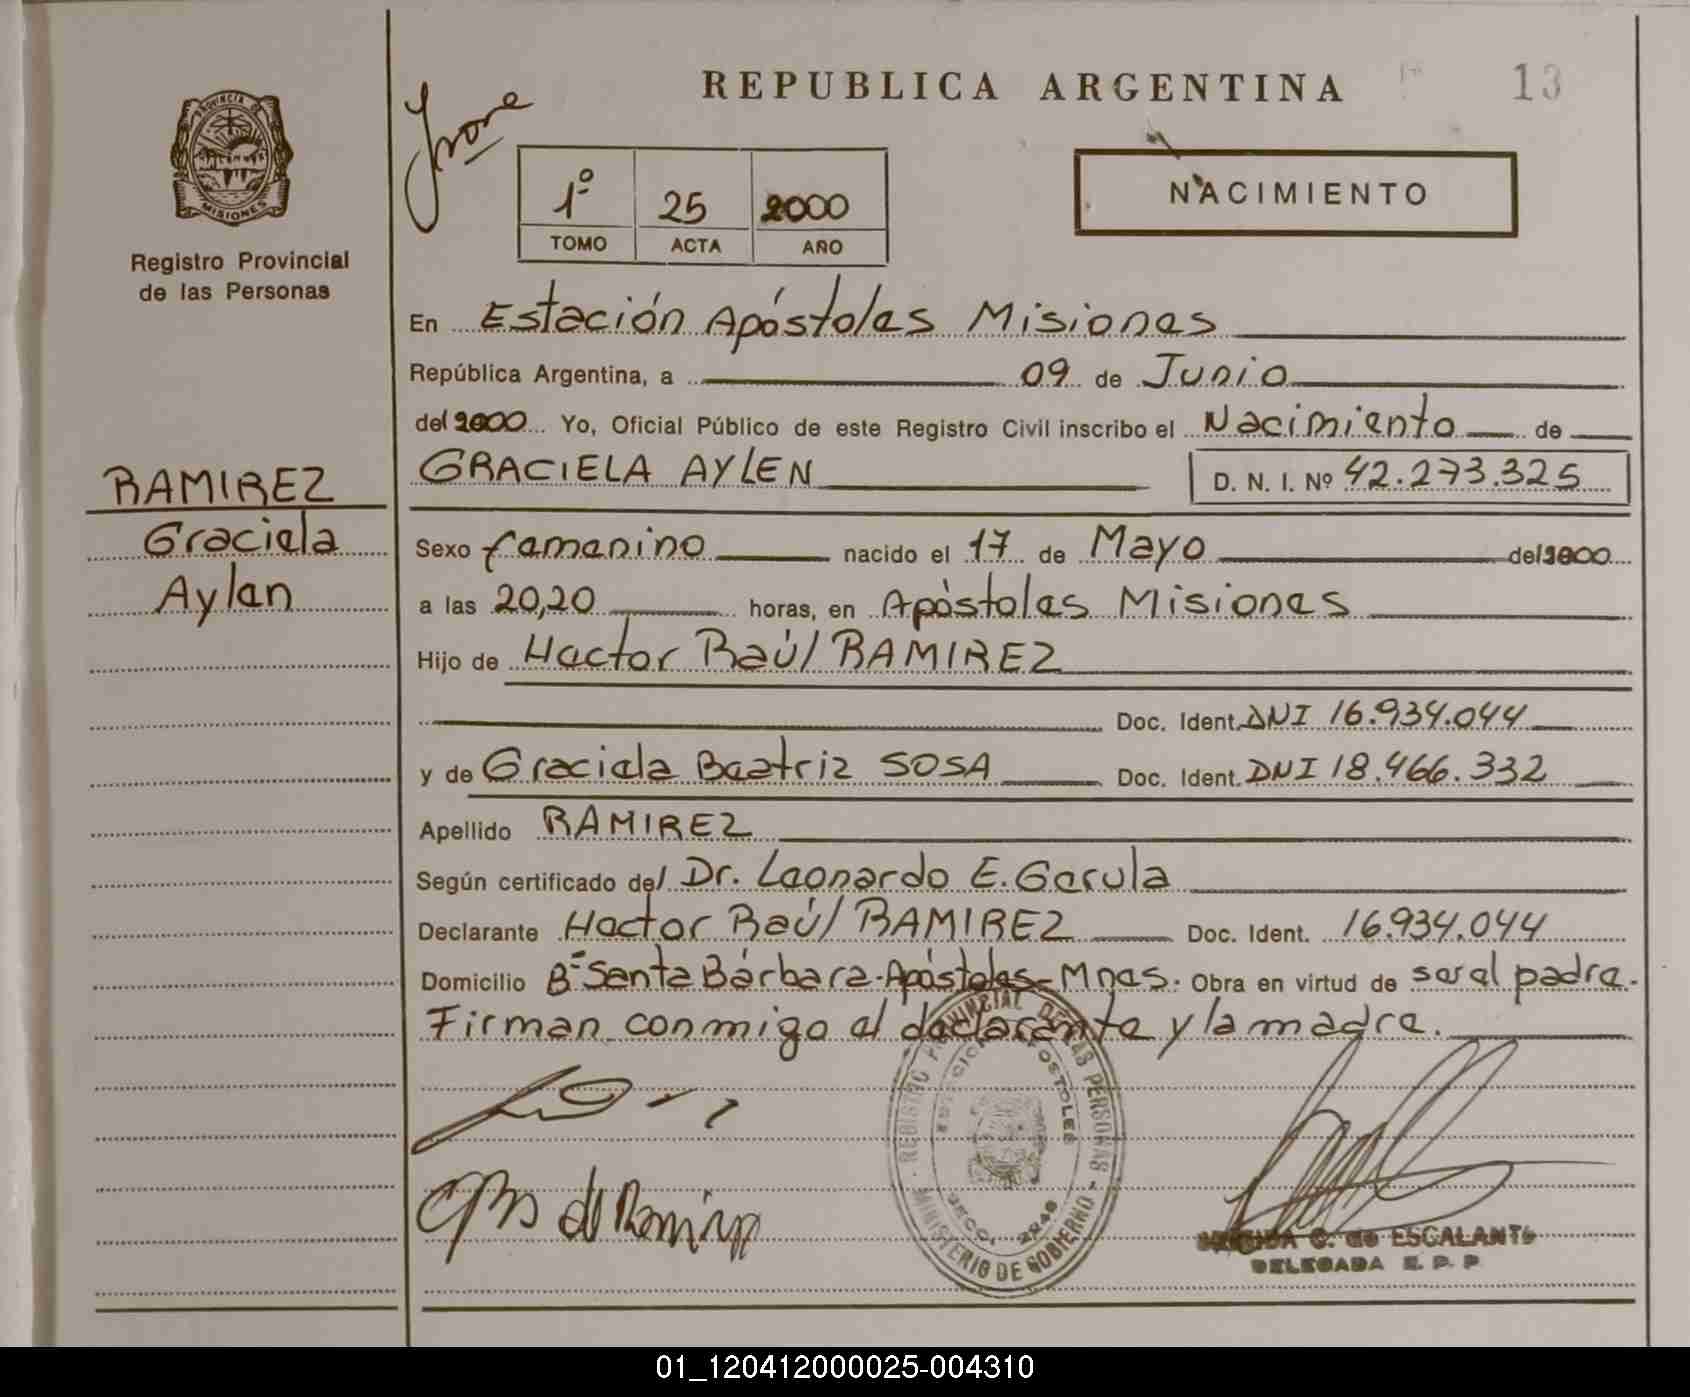 REPUBLICA ARGENTINA
13
PROVINCIA DE
MISIONES
Registro Provincial
de las Personas
1º 25 2000
TOMO ACTA AÑO
NACIMIENTO
En Estación Apóstoles Misiones
República Argentina, a 09 de Junio
del 2000 Yo, Oficial Público de este Registro Civil inscribo el Nacimiento de
GRACIELA AYLEN D. N. I. Nº 42.273.325
RAMIREZ
Graciela
Aylen
Sexo femenino nacido el 17 de Mayo del 2000
a las 20,20 horas, en Apóstoles Misiones
Hijo de Hector Raúl RAMIREZ
Doc. Ident. DNI 16.934.044
y de Graciela Beatriz SOSA Doc. Ident. DNI 18.466.332
Apellido RAMIREZ
Según certificado del Dr. Leonardo E. Gerula
Declarante Hector Raúl RAMIREZ Doc. Ident. 16.934.044
Domicilio Bº Santa Bárbara-Apóstoles-Mnes. Obra en virtud de ser el padre.
Firman conmigo el declarante y la madre.
REGISTRO PROVINCIAL DE LAS PERSONAS
MINISTERIO DE GOBIERNO
ESTACION APOSTOLES
de Ramirez
C. de ESCALANTE
DELEGADA R. P. P.
01_120412000025-004310